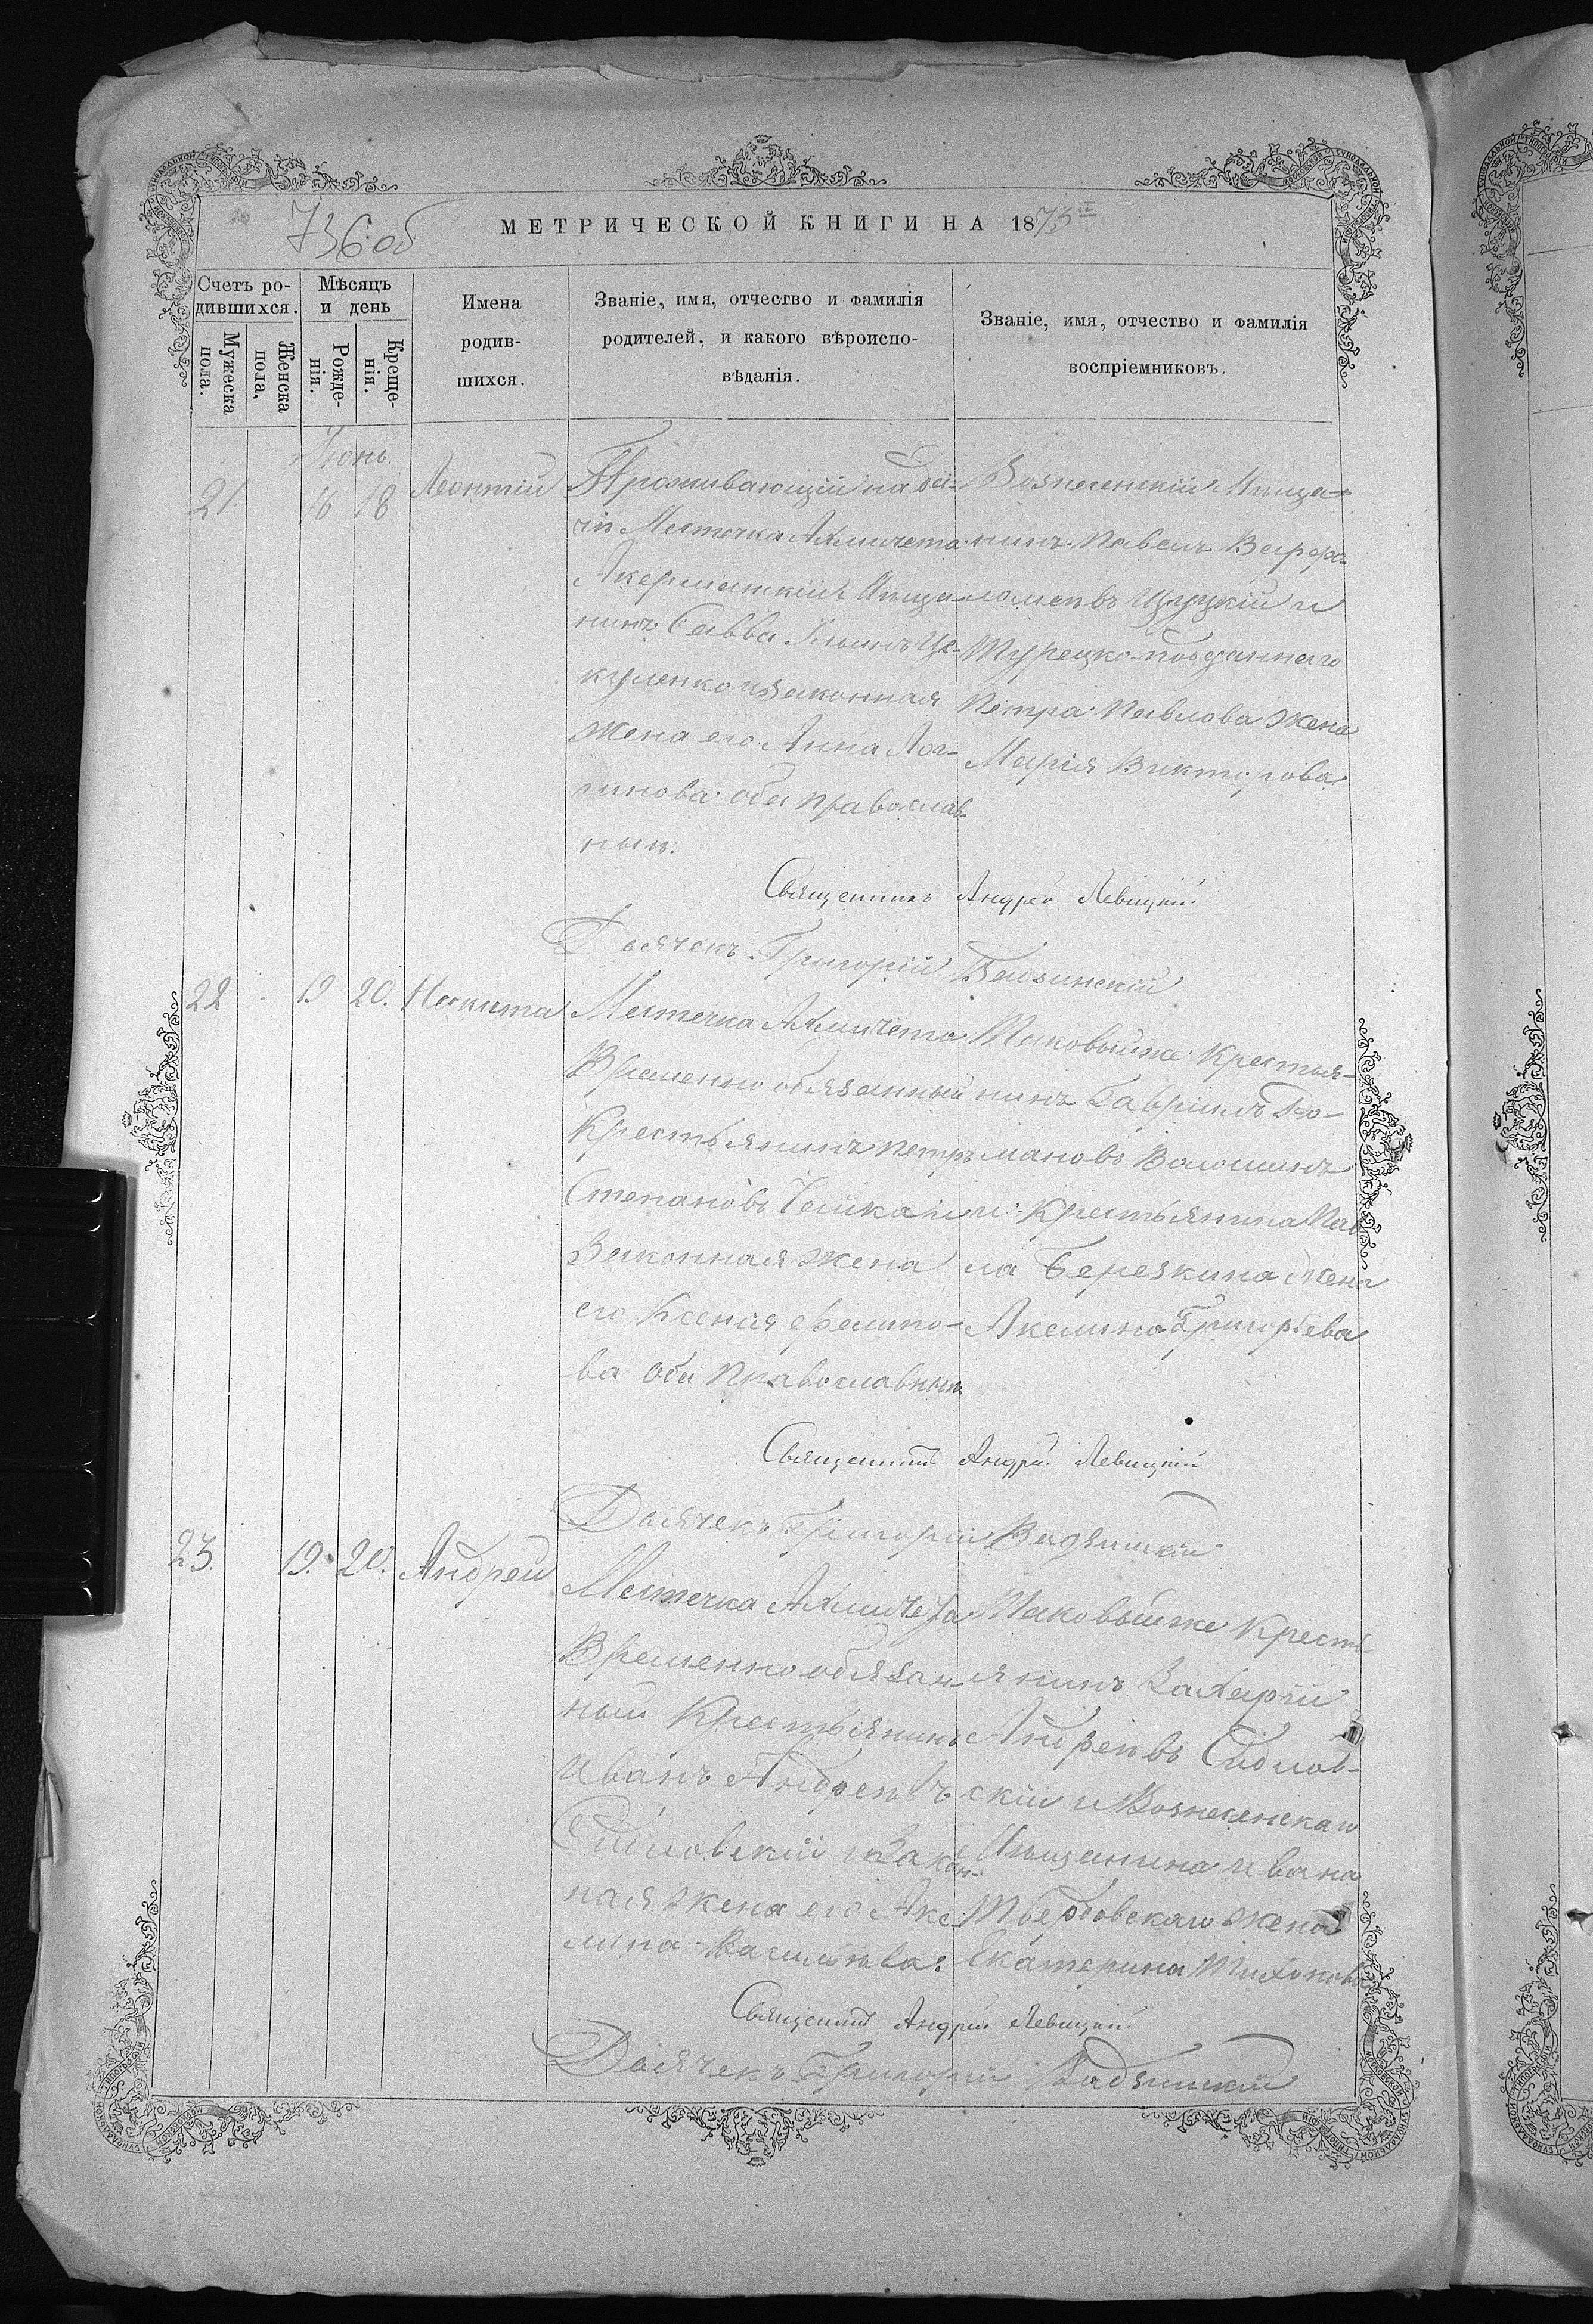 736 об
МЕТРИЧЕСКОЙ КНИГИ НА 1873
Счетъ ро-
дившихся.
Мужеска
пола.
Женска
пола,
Мѣсяцъ
и день
Рожде-
нія.
Креще-
нія.
Имена
родив-
шихся.
Званіе, имя, отчество и фамилія
родителей, и какого вѣроиспо-
вѣданія.
Званіе, имя, отчество и фамилія
воспріемниковъ.
Іюнь
21. 16 18 Леонтій
Проживающій на да-
чѣ Местечка Ахмичета
Акерманскій Мѣща-
нинъ Савва Ильинъ Це-
куленко и законная
жена его Анна Лог-
гинова оба православ-
ныѣ.
Вознесенскій Мѣща-
нинъ Павелъ Варфо-
ломеевъ Щуцкій и
Турецко-подданнаго
Петра Павлова жена
Марія Викторова
Священникъ Андрей Левицкій
Дьячекъ Григорій
22 19 20. Никита
Местечка Ахмичета
Временно обязанный
Крестьянинъ Петръ
Степановъ Чайка и
Законная жена
его Ксенія Филипо-
ва Оба Православныѣ
Таковыйже Крестья-
нинъ Гавріилъ Ро-
мановъ Волошинъ
и Крестьянина Пав
ла Березкина жена
Акилина Григорьева
Священникъ Андрей Левицкій
Дьячекъ Григорій Вадзинскій
23. 19. 20. Андрей
Местечка Ахмичета
Временно обязан-
ный Крестьянинъ
Иванъ Андреевъ
Сидловскій и Закон-
ная жена его Аки-
лина Васильева:
Таковыйже Кресть-
янинъ Захарій
Андреевъ Сидлов-
скій и Вознесенскаго
Мѣщанина Ивана
Твердовскаго жена
Екатерина Тихонова
Священникъ Андрей Левицкій
Дьячекъ Григорій Вадзинскій